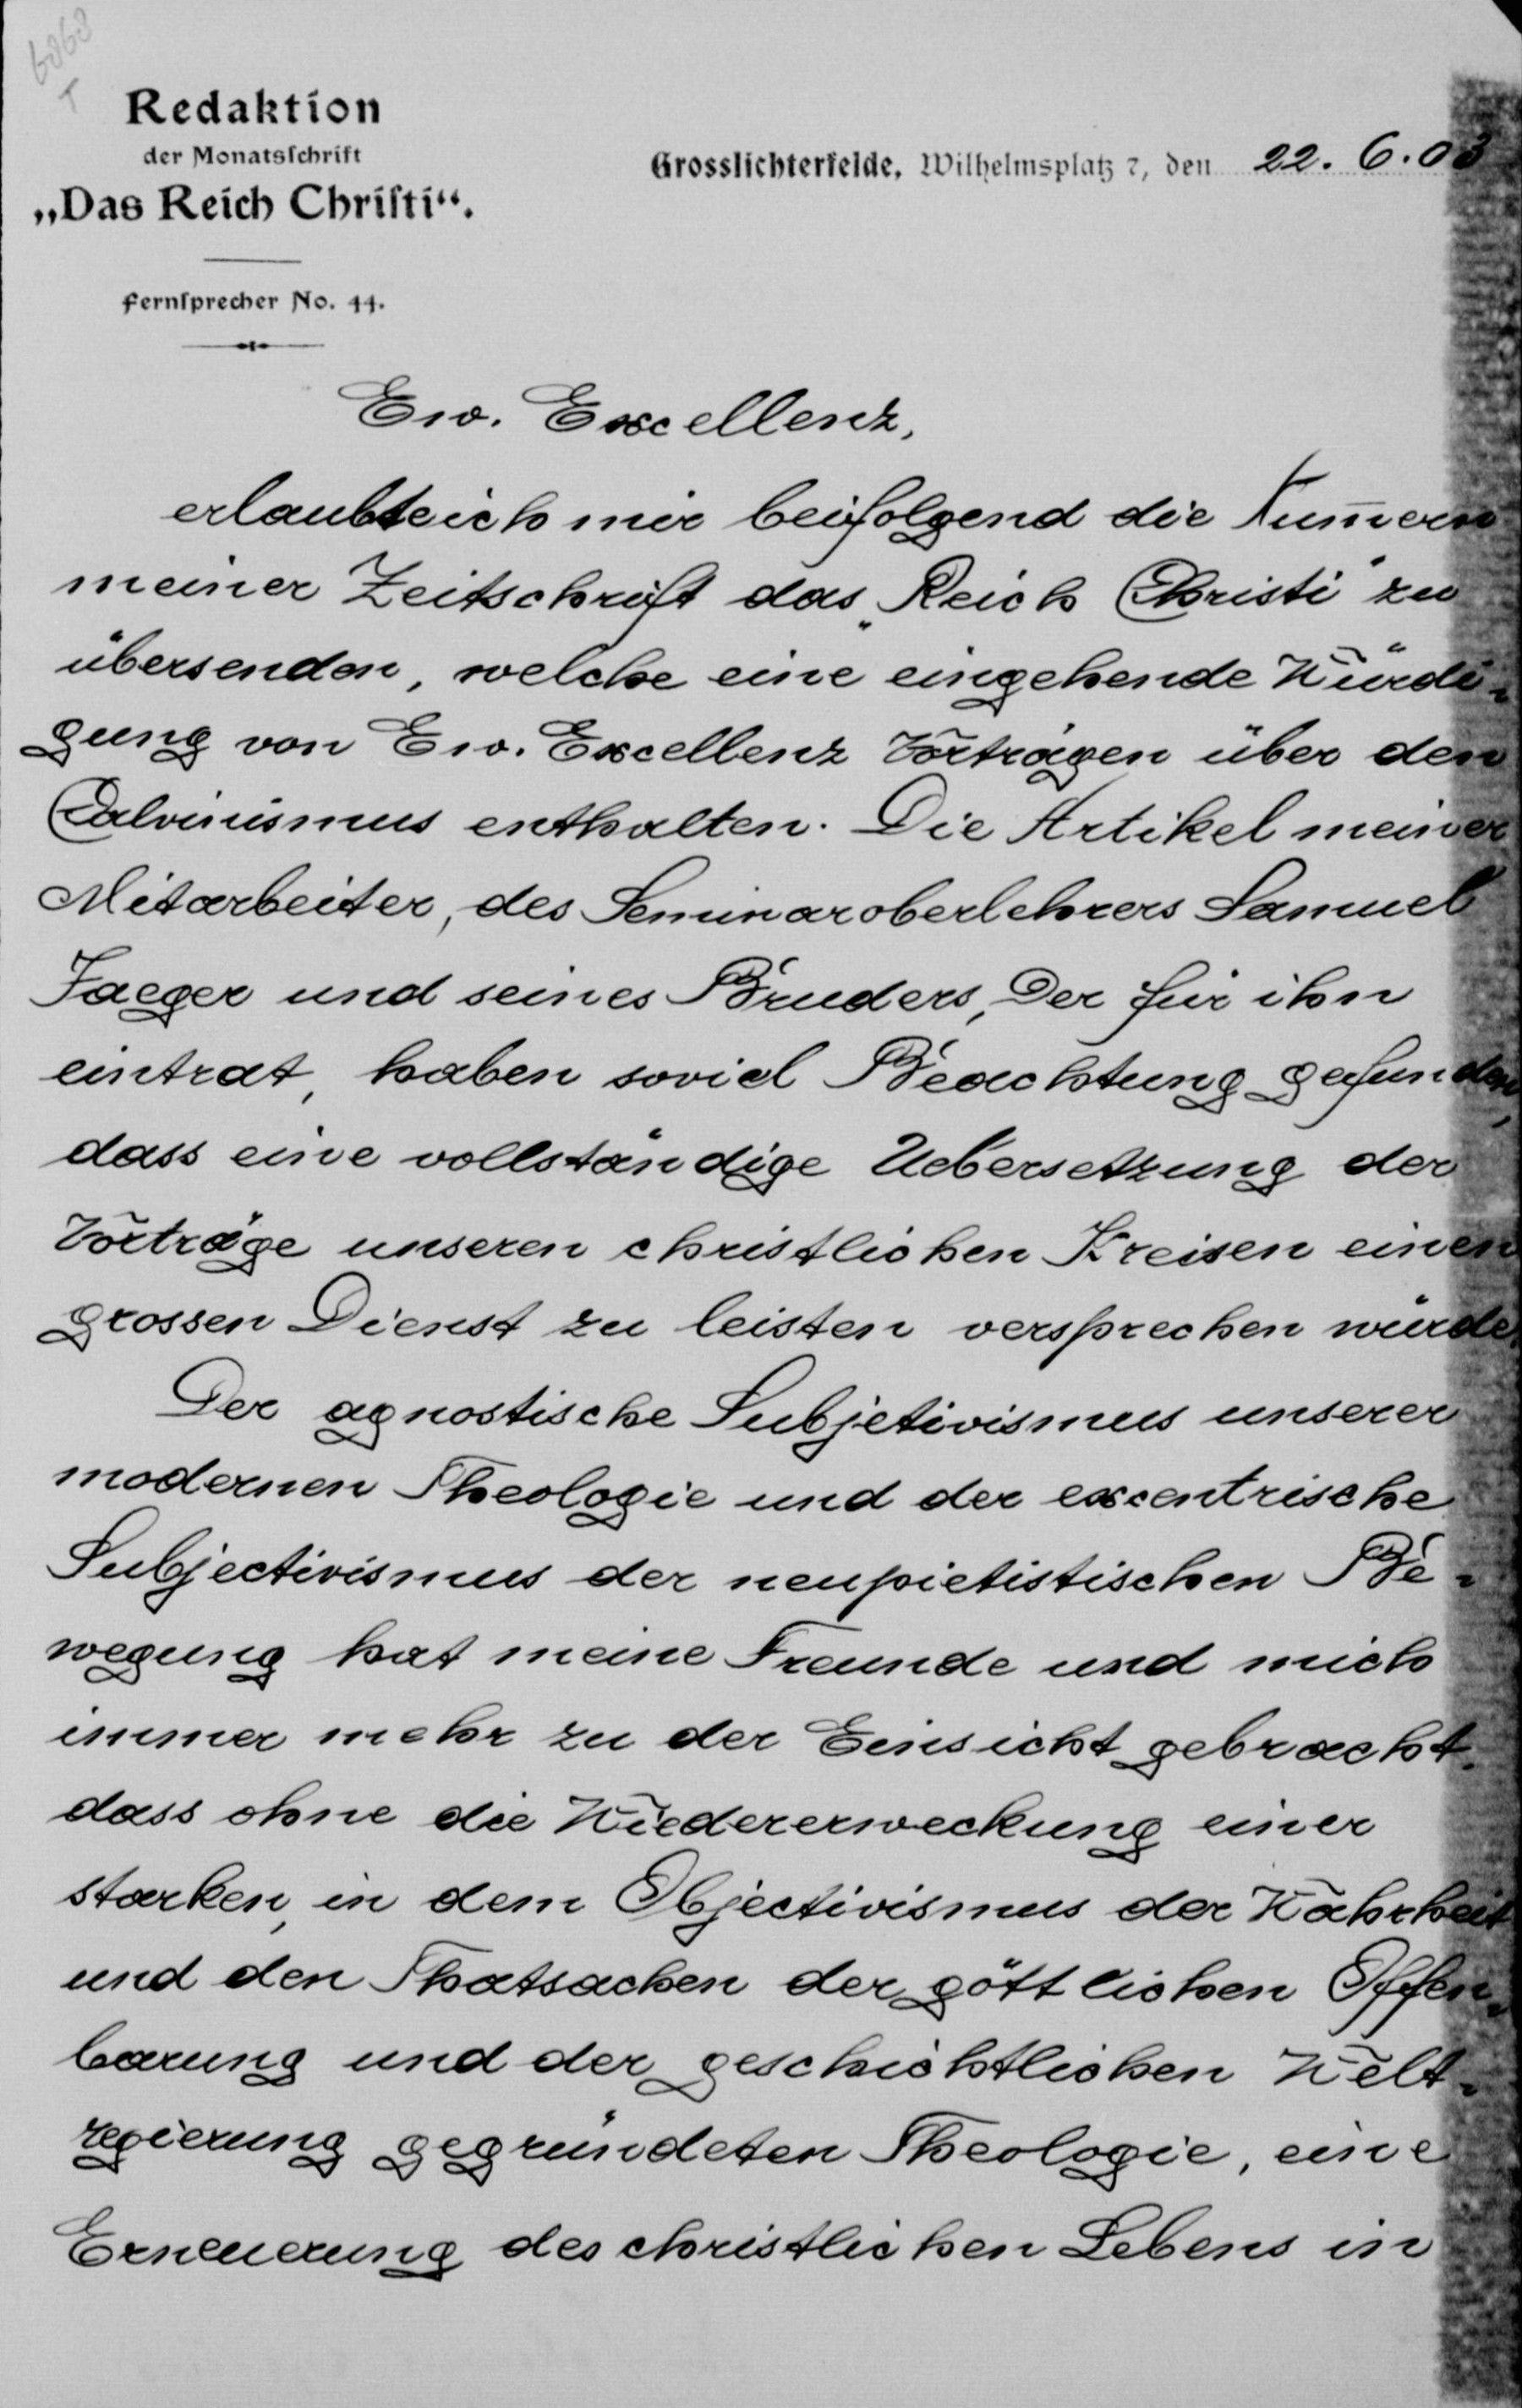 6868
T
Redaktion
der Monatsſchrift
„Das Reich Chriſti“.
Fernſprecher No. 44.
Grosslichterfelde, Wilhelmsplatz 7, den 22. 6. 03
Ew. Excellenz,
erlaubte ich mir beifolgend die Num̄ern
meiner Zeitschrift das „Reich Christi“ zu
übersenden, welche eine eingehende Würdi-
gung von Ew. Excellenz Vorträgen über den
Calvinismus enthalten. Die Artikel meiner
Mitarbeiter, des Seminaroberlehrers Samuel
Jaeger und seines Bruders, der für ihn
eintrat, haben soviel Beachtung gefunden,
dass eine vollständige Uebersetzung der
Vorträge unseren christlichen Kreisen einen
grossen Dienst zu leisten versprechen würde.
Der agnostische Subjetivismus unserer
modernen Theologie und der excentrische
Subjectivismus der neupietistischen Be-
wegung hat meine Freunde und mich
immer mehr zu der Einsicht gebracht.
dass ohne die Wiedererweckung einer
starken, in dem Objectivismus der Wahrheit
und den Thatsachen der göttlichen Offen-
barung und der geschichtlichen Welt-
regierung gegründeten Theologie, eine
Erneuerung des christlichen Lebens in